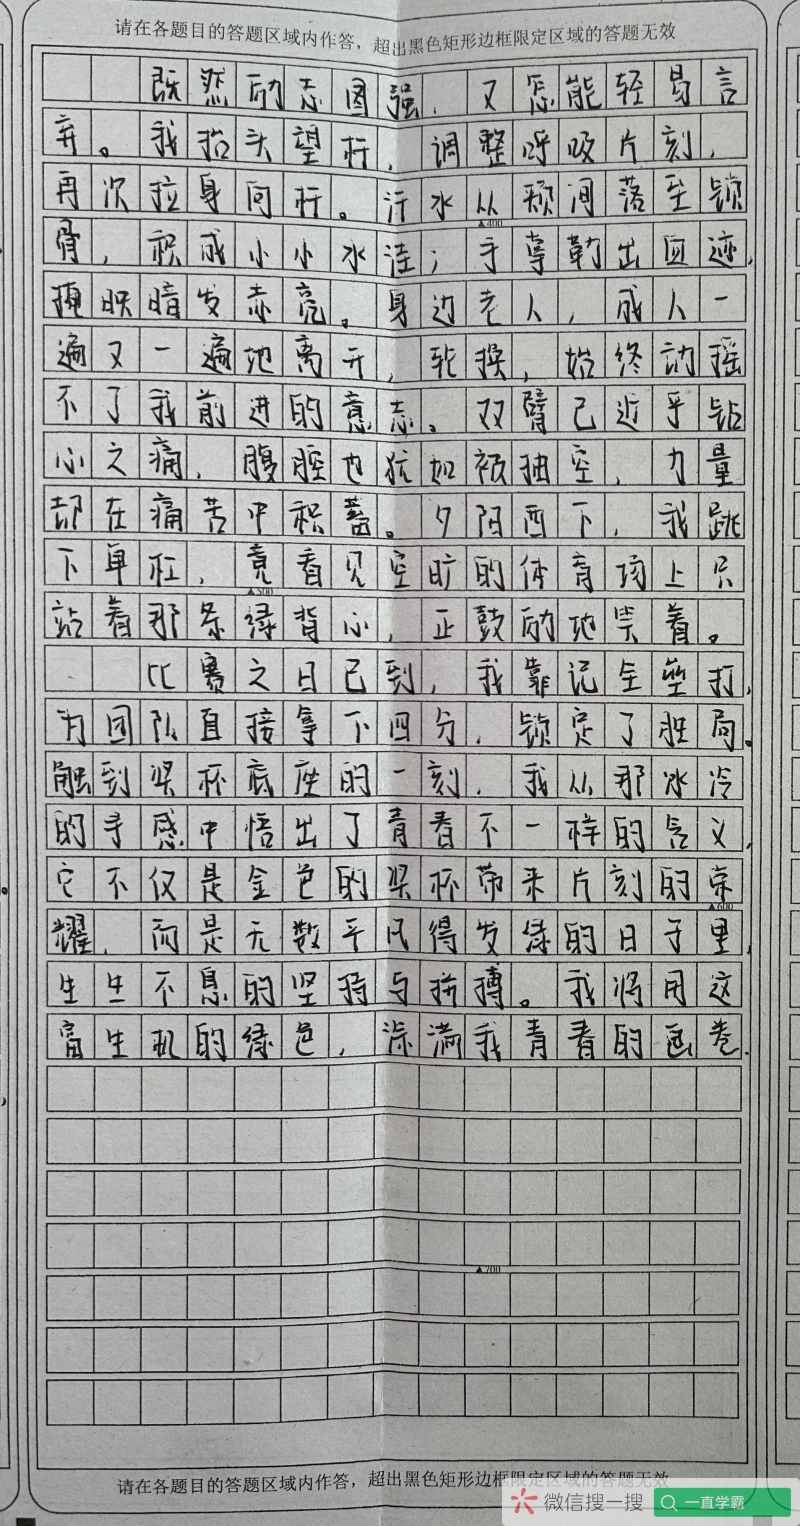 请在各题目的答题区域内作答，超出黑色矩形边框限定区域的答题无效
既然励志图强，又怎能轻易言
弃。我抬头望杆，调整呼吸片刻，
再次拉身向杆。汗水从颊间落至锁
▲400
骨，积成小小水洼；手掌勒出血迹，
掩映暗发赤亮。身边老人，成人一
遍又一遍地离开，轮换，始终动摇
不了我前进的意志。双臂已近乎钻
心之痛，腹腔也犹如被抽空，力量
却在痛苦中积蓄。夕阳西下，我跳
下单杠，竟看见空旷的体育场上只
▲500
站着那条绿背心，正鼓励地笑着。
比赛之日已到，我靠记全垒打，
为团队直接拿下四分，锁定了胜局。
触到奖杯底座的一刻，我从那冰冷
的手感中悟出了青春不一样的含义，
它不仅是金色的奖杯带来片刻的荣
▲600
耀，而是无数平凡得发绿的日子里，
生生不息的坚持与拼搏。我将用这
富生机的绿色，涂满我青春的画卷.
▲700
请在各题目的答题区域内作答，超出黑色矩形边框限定区域的答题无效
微信搜一搜 一直学霸